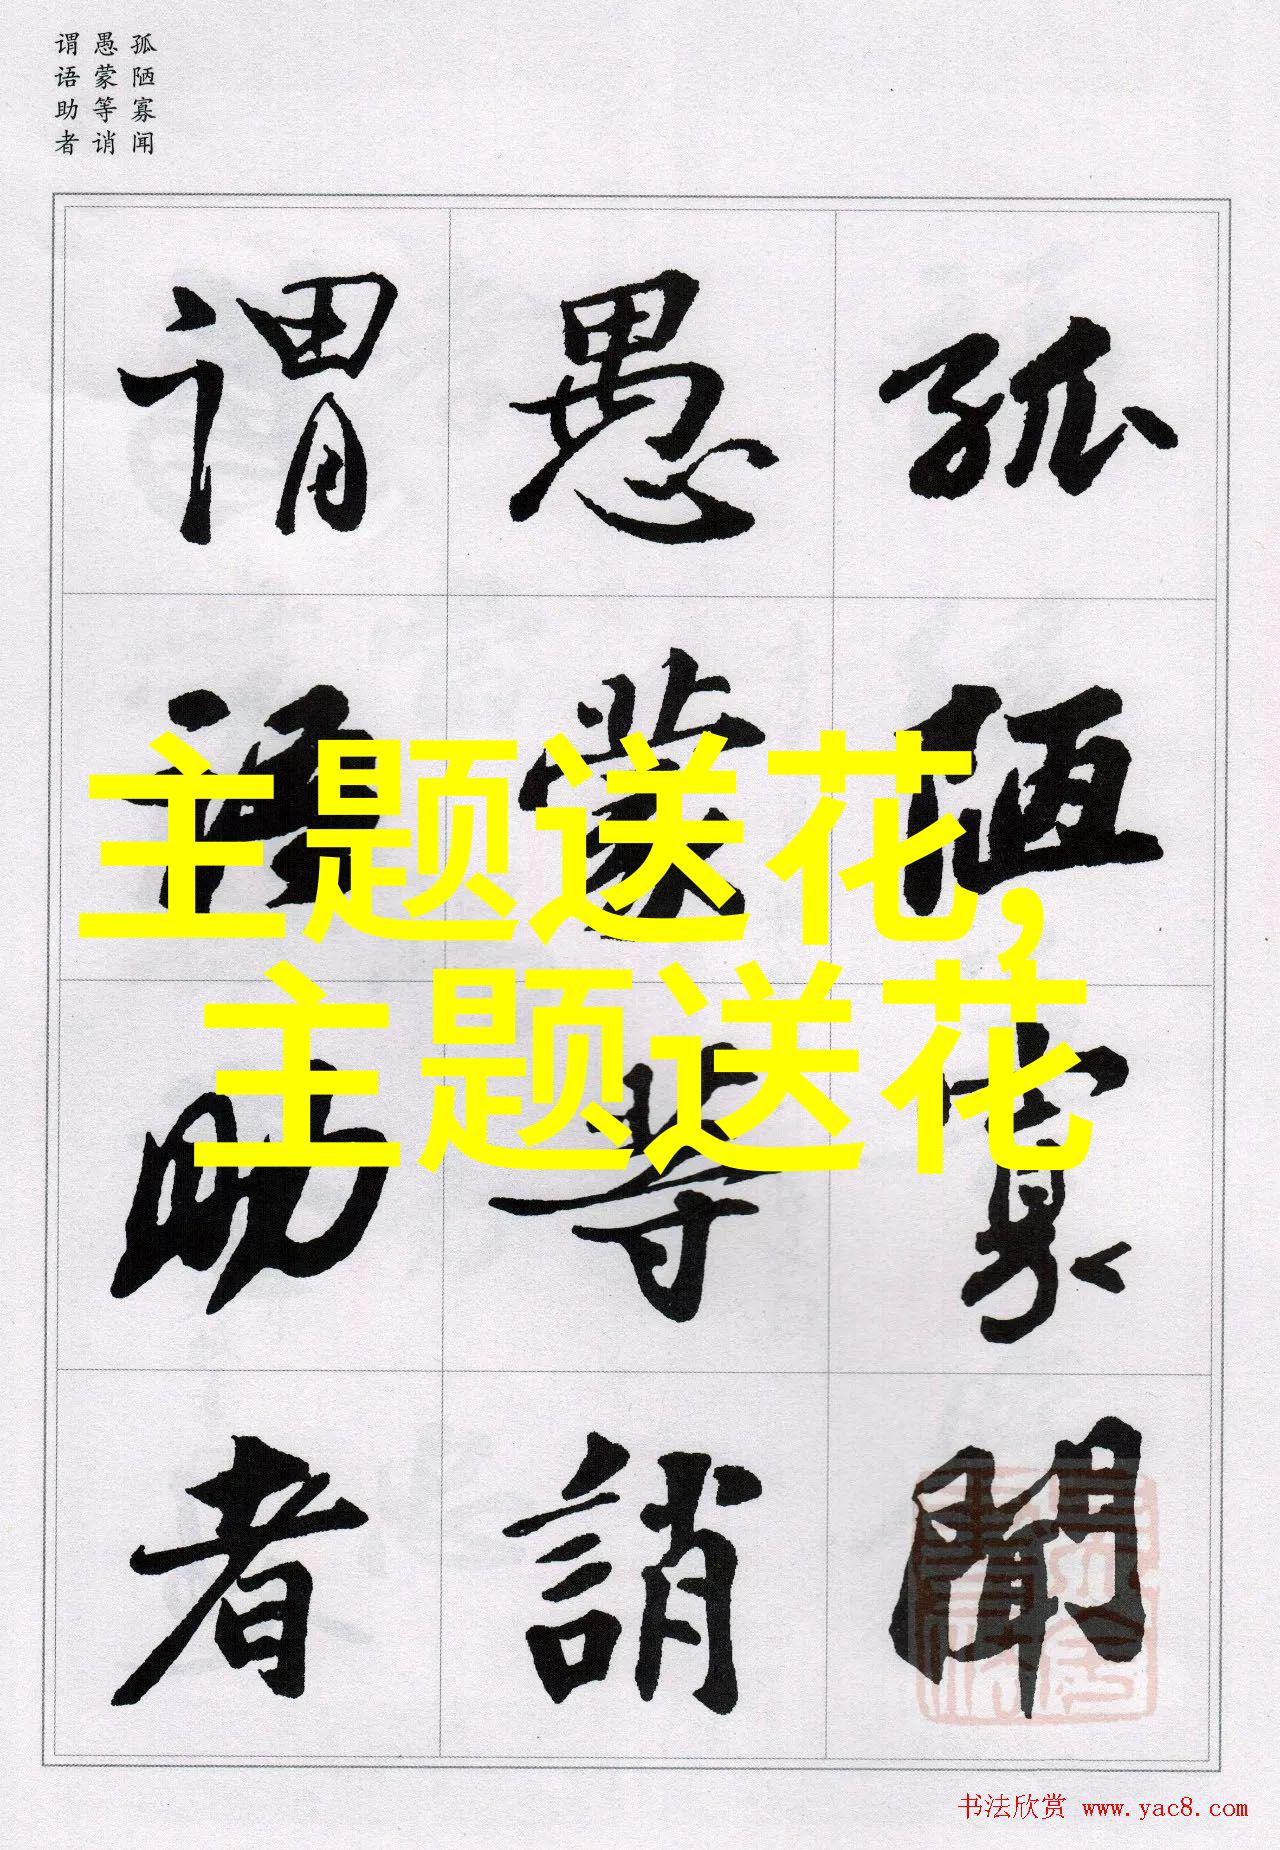 孤陋寡闻
愚蒙等诮
谓语助者
孤陋寡聞
愚蒙等誚
谓語助者
主题送花,
主题送花
书法欣赏 www.yac8.com